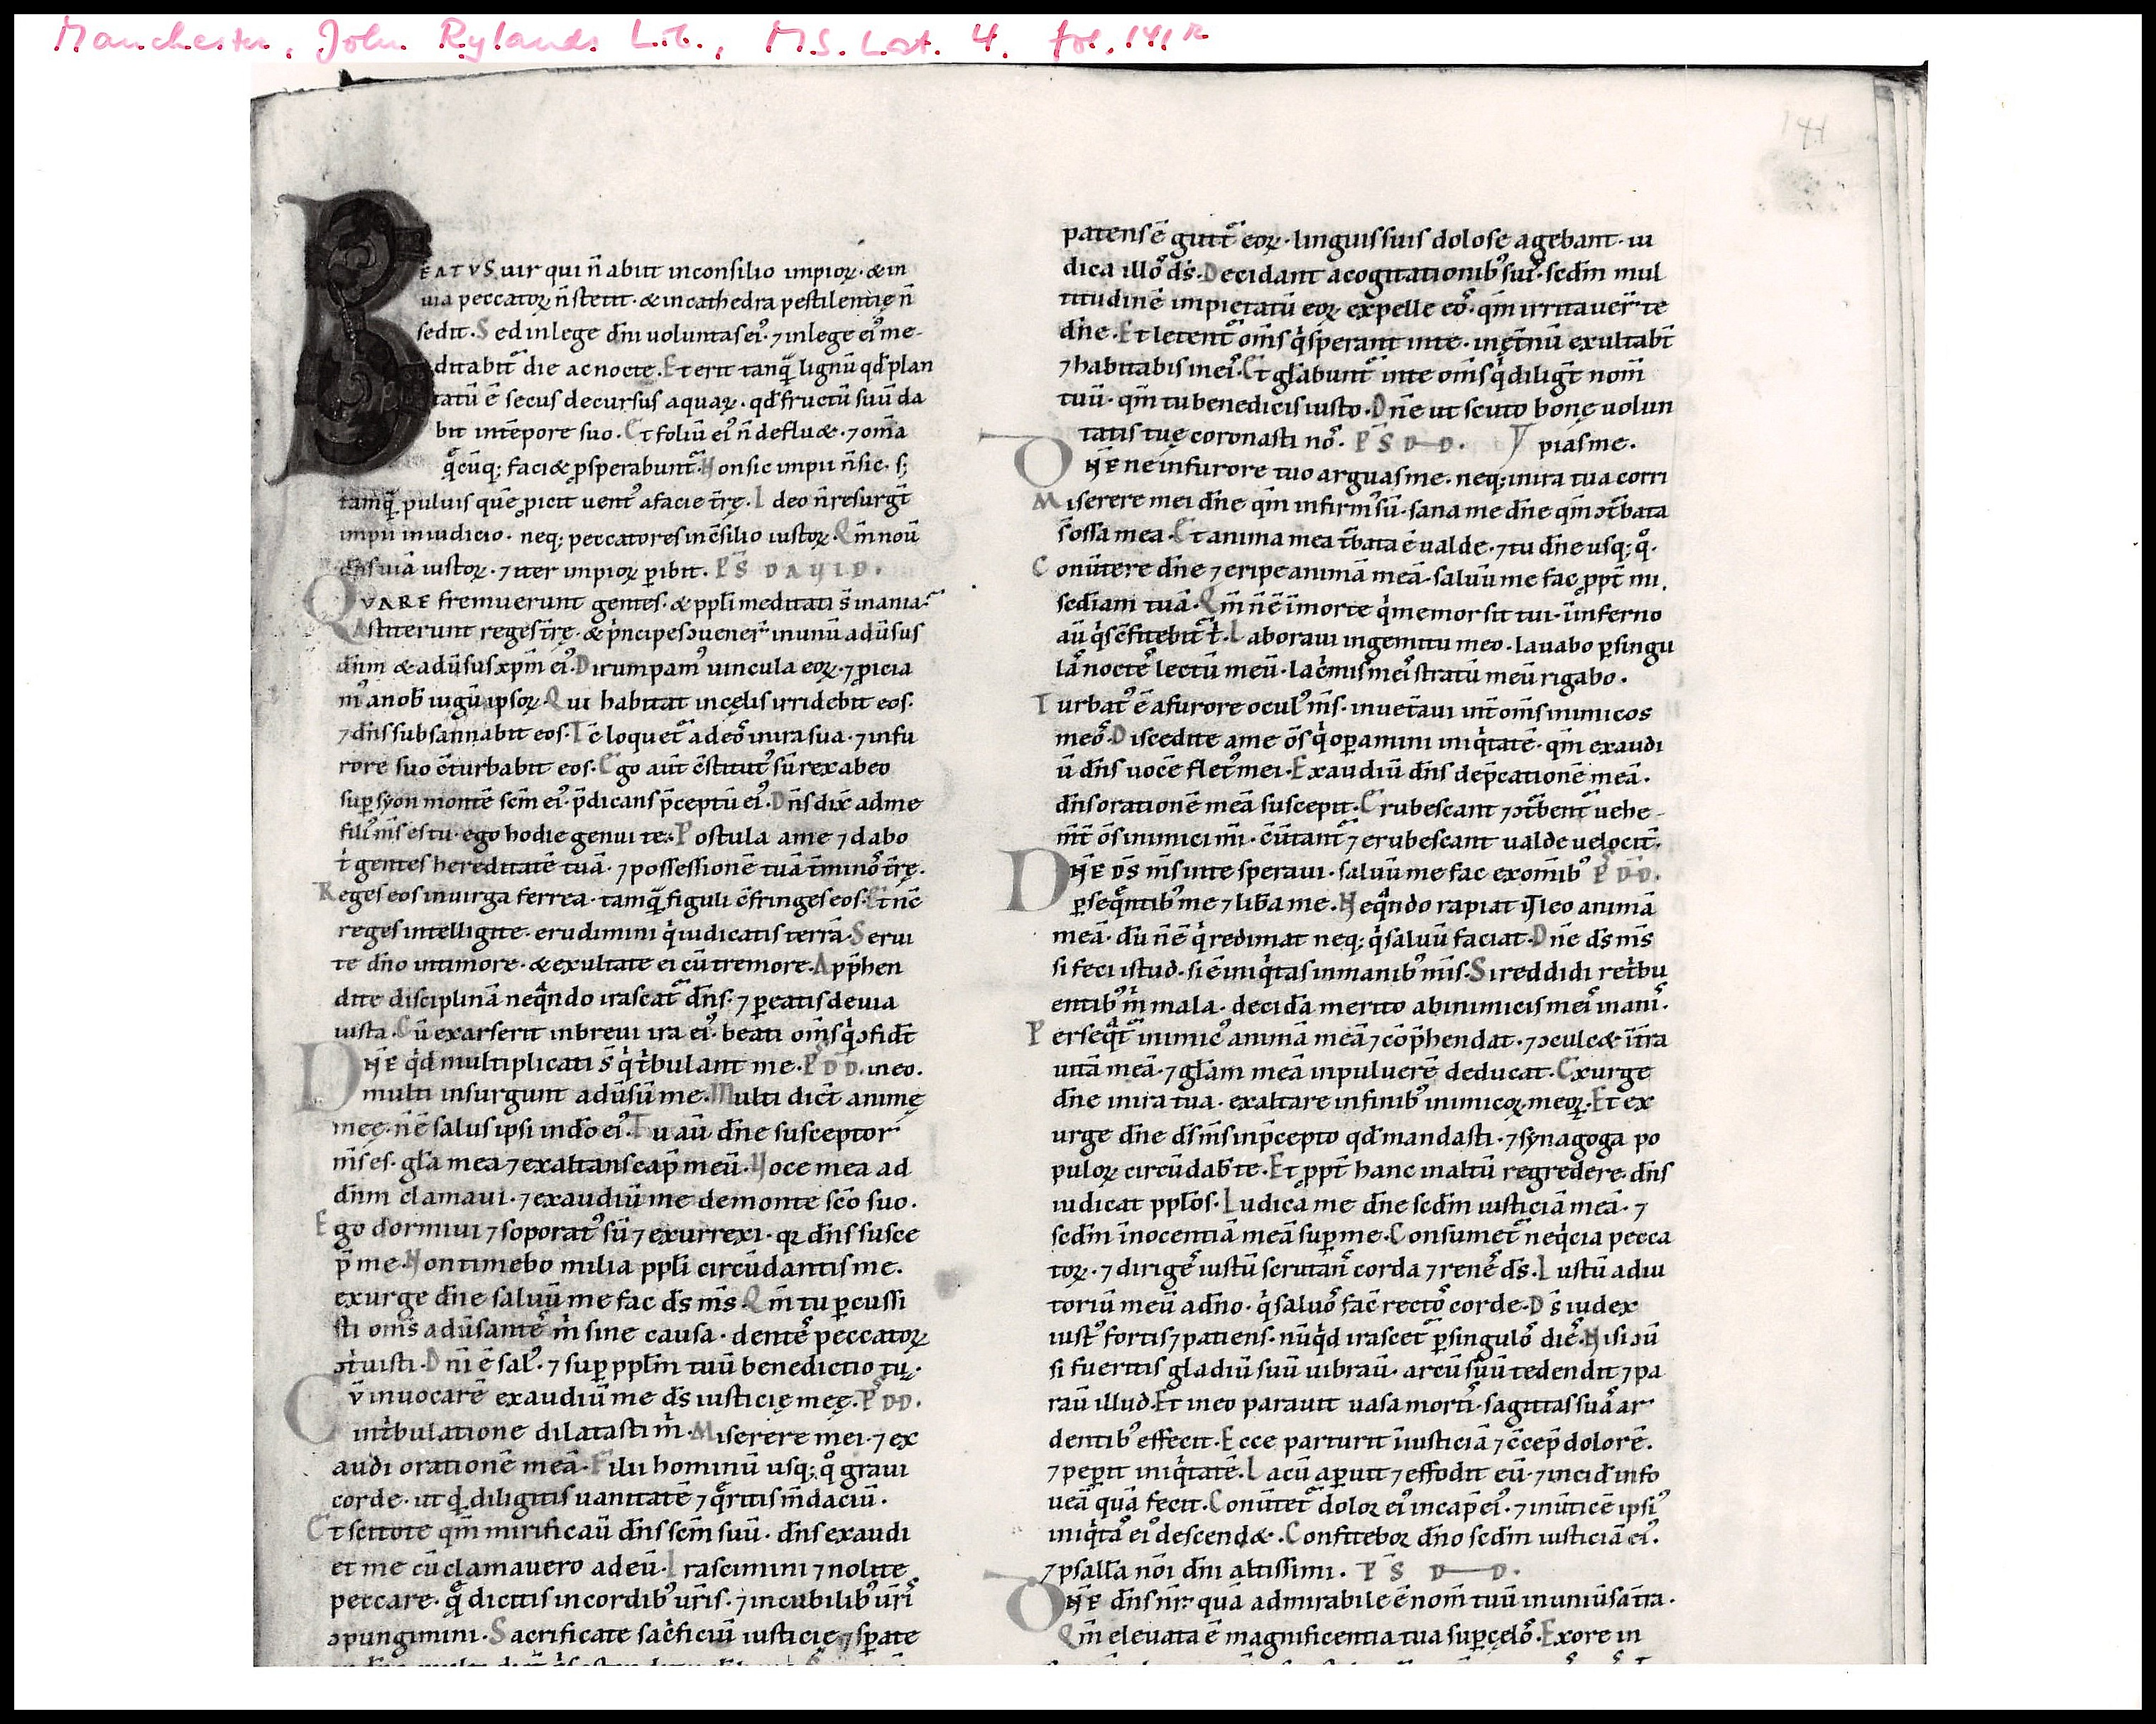 Manchester, John Rylands Lib., MS. Lat. 4. fol. 141R
141
BEATVS uir qui n̄ abiit inconsilio impioꝝ · & in
uia peccatoꝝ n̄ stetit · & incathedra pestilentię n̄
sedit · Sed inlege dn̄i uoluntas ei᾽ · ⁊ inlege ei᾽ me-
ditabit᷑ die ac nocte . Et erit tanqͣ̄ lignū qd̄ plan
tatū ē secus decursus aquaꝝ · qd̄ fructū suū da
bit intēpore suo . Et foliū ei᾽ n̄ defluet · ⁊ om̄a
q̄cūq; faci& ꝓsperabunt᷑ · Non sic impii n̄ sic · s;
tamqͣ̄ puluis quē ꝓicit uent᾽ afacie t̄rę . Ideo n̄ resurgt̄
impii iniudicio · neq; peccatores inc̄silio iustoꝝ · Qm̄ nou̅
dn̄s uiā iustoꝝ · ⁊ iter impioꝝ ꝑibit . PS̄ DAVID .
QVARE fremuerunt gentes · & ppl̄i meditati s̄ inania ·
Astiterunt reges t̄rę · & pͥncipes ↄuener̄ inunū adūsus
dn̄m & adūsus xp̄m ei᾽ . Dirumpam᾽ uincula eoꝝ · ⁊ ꝓicia
m᾽ anob̄ iugū ipsoꝝ · Qui habitat incęlis irridebit eos ·
⁊ dn̄s subsannabit eos · Tc̄ loquet᷑ adeo᷒ inira sua · ⁊ infu
rore suo c̄turbabit eos · Ego aūt c̄stitut᾽ sū rex abeo
suꝑ syon montē sc̄m ei᾽ · p̄dicans p̄ceptū ei᾽ . Dn̄s dix̄ adme
fili᾽ m̄s es tu · ego hodie genui te . Postula ame ⁊ dabo
tͥ gentes hereditatē tuā · ⁊ possessionē tuā t̄mino᷒ t̄rę .
Reges eos inuirga ferrea · tamqͣ̄ figuli c̄fringes eos · Et nc̄
reges intelligite · erudimini qͥ iudicatis terrā · Serui
te dn̄o intimore · & exultate ei cū tremore . App̄hen
dite disciplinā neqͣ̄ndo irascat᷑ dn̄s · ⁊ ꝑeatis deuia
iusta . Cū exarserit inbreui ira ei᾽ · beati om̄s qͥ ↄfidt̄
DNE qͥd multiplicati s̄ qͥ tͥbulant me . PS̄ DD . ineo .
multi insurgunt adūsū me . Multi dic̄t animę
meę · n̄ ē salus ipsi indō ei᾽ . Tu aū dn̄e susceptor
m̄s es · gl̄a mea ⁊ exaltans cap̄ meū . Voce mea ad
dn̄m clamaui · ⁊ exaudiū me demonte sc̄o suo .
Ego dormiui ⁊ soporat᾽ sū ⁊ exurrexi · qꝛ dn̄s susce
p̄ me . Non timebo milia ppl̄i circūdantis me .
exurge dn̄e saluū me fac ds̄ m̄s . Qm̄ tu ꝑcussi
sti om̄s adūsante᷒ mͥ sine causa · dente᷒ peccatoꝝ
ↄtͥuisti . Dn̄i ē sal᾽ · ⁊ suꝑ ppl̄m tuū benedictio tu ·
CV̄ inuocarē exaudiū me ds̄ iusticię meę . PS̄ DD .
intͥbulatione dilatasti mͥ . Miserere mei · ⁊ ex
audi orationē meā . Filii hominū usq; qͦ graui
corde · ut qͥd diligitis uanitatē ⁊ q̄ritis m̄daciū .
Et scitote qm̄ mirificaū dn̄s sc̄m suū · dn̄s exaudi
et me cū clamauero adeū . Irascimini ⁊ nolite
peccare · q̄ dicitis incordib᾽ ur̄is · ⁊ incubilib᾽ ur̄i᷒
ↄpungimini . Sacrificate sacͥficiū iusticię ⁊ sꝑate
patens ē gutt᷑ eoꝝ · linguis suis dolose agebant · iu
dica illo᷒ ds̄ . Decidant acogitationib᾽ sui᷒ · sedm̄ mul
titudinē impietatū eoꝝ expelle eo᷒ · qm̄ irritauer̄ te
dn̄e . Et letent᷑ om̄s qͥ sperant inte · inęt̄nū exultabt̄
⁊ habitabis inei᷒ . Et gl̄abunt᷑ inte om̄s qͥ diligt̄ nom̄
tuū · qm̄ tu benedicis iusto . Dn̄e ut scuto bonę uolun
tatis tuę coronasti no᷒ . PS̄ D D . piasme .
DNE ne infurore tuo arguas me · neq; inira tua corri
Miserere mei dn̄e qm̄ infirm᾽ sū · sana me dn̄e qm̄ ↄt̄bata
s̄ ossa mea . Et anima mea t̄bata ē ualde · ⁊ tu dn̄e usq; qͦ ·
Conūtere dn̄e ⁊ eripe animā meā · saluū me fac ꝓpt̄ mi
sediam tuā . Qm̄ n̄ ē īmorte qͥ memor sit tui · īinferno
aū qͥs c̄fitebit᷑ tͥ . Laboraui ingemitu meo · lauabo ꝑsingu
la᷒ nocte᷒ lectū meū · lacͥmis mei᷒ stratū meū rigabo .
Turbat᾽ ē afurore ocul᾽ m̄s · inuet̄aui int̄ om̄s inimicos
meo᷒ . Discedite ame ōs qͥ oꝑamini iniqͥtatē · qm̄ exaudi
ū dn̄s uocē flet᾽ mei . Exaudiū dn̄s dep̄cationē meā .
dn̄s orationē meā suscepit . Erubescant ⁊ ↄt̄bent᷑ uehe-
mt̄ ōs inimici mi̅ · c̄ūtant᷑ ⁊ erubescant ualde uelocit̄ .
DNE DS̄ m̄s inte speraui · saluū me fac exom̄ib᾽ PS̄ DD .
ꝑseqͣ̄ntib᾽ me ⁊ lib̄a me . Neqͣ̄ndo rapiat ut leo animā
meā · dū n̄ ē qͥ redimat neq; qͥ saluū faciat . Dn̄e ds̄ m̄s
si feci istud · si ē iniqͥtas inmanib᾽ m̄is . Si reddidi retͥbu
entib᾽ mͥ mala · decidā merito abinimicis mei᷒ inani᷒ .
Perseqͣt᷑ inimic᾽ animā meā ⁊ c̄op̄hendat · ⁊ ↄculc& īt̄ra
uitā meā · ⁊ gl̄am meā inpuluerē deducat . Exurge
dn̄e inira tua · exaltare infinib᾽ inimicoꝝ meoꝝ . Et ex
urge dn̄e ds̄ m̄s inp̄cepto qd̄ mandasti · ⁊ synagoga po
puloꝝ circūdab̄ te . Et ꝓpt̄ hanc inaltū regredere · dn̄s
iudicat ppl̄os . Iudica me dn̄e sedm̄ iusticiā meā · ⁊
sedm̄ īnocentiā meā suꝑ me . Consumet᷑ neqͥcia pecca
toꝝ · ⁊ dirige᷒ iustū scrutan᷒ corda ⁊ rene᷒ ds̄ . Iustū adiu
toriū meū adn̄o · qͥ saluo᷒ fac̄ recto᷒ corde . Ds̄ iudex
iust᾽ fortis ⁊ patiens · nūqͥd irascet᷑ ꝑsingulo᷒ die᷒ . Nisi ↄū
si fueritis gladiū suū uibraū · arcū suū tedendit ⁊ pa
raū illud . Et ineo parauit uasa morti᷒ · sagittas sua᷒ ar
dentib᾽ effecit . Ecce parturit īiusticiā ⁊ c̄cep̄ dolorē .
⁊ peꝑit iniqͥtatē . Lacū aꝑuit ⁊ effodit eū · ⁊ incid̄ info
ueā quā fecit . Conūtet᷑ dolor ei᾽ incap̄ ei᾽ · ⁊ inūticē ipsi᾽
iniqͥta᷒ ei᾽ descend& . Confitebor dn̄o sedm̄ iusticiā ei᾽ .
⁊ psallā nōi dn̄i altissimi . PS̄ D D .
DNE dn̄s nr̄ · quā admirabile ē nom̄ tuū inuniūsa t̄ra .
Qm̄ eleuata ē magnificentia tua suꝑcęlo᷒ . Exore in